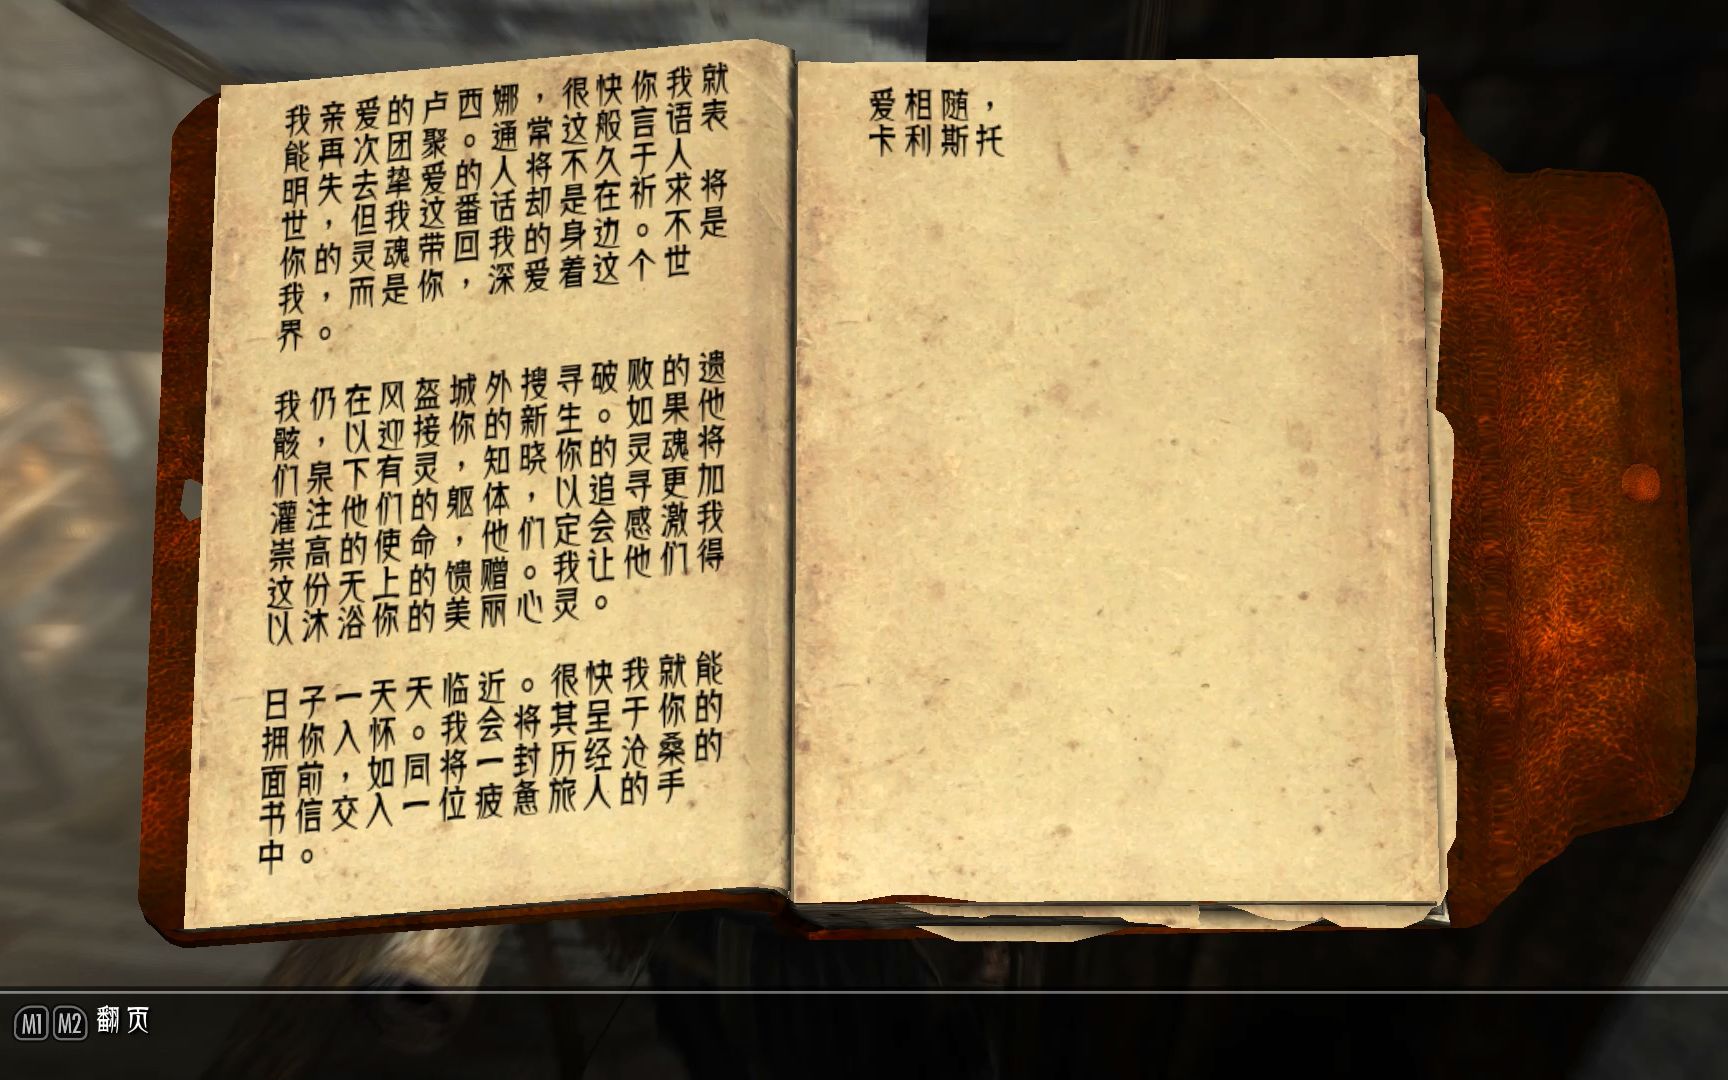 我亲爱的卢西娜，很快你我就
能再次团聚。通常这般言语表
明失去挚爱的人将不久于人
世，但我这番话却是在祈求将
你的灵魂带回我的身边。不是
我，而是你，深爱着这个世
界。
我仍在风盔城外搜寻破败的遗
骸，以迎接你的新生。如果他
们泉下有灵，知晓你的灵魂将
灌注他们的躯体，以追寻更加
崇高的使命，他们定会感激我
这份无上的馈赠。我让他们得
以沐浴你的美丽心灵。
日子一天天临近。很快我就能
拥你入怀。我会将其呈于你的
面前，如同将一封历经沧桑的
书信交入一位疲惫旅人的手
中。
爱相随，
卡利斯托
M1 M2 翻页